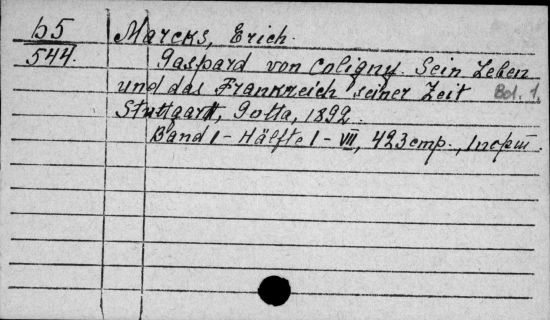 b5
544.
Marcks, Erich.
Gaspard von Coligny. Sein Leben
und das Frankreich seiner Zeit Bd. 1.
Stuttgart, Gotta, 1892.
Band 1 - Hälfte 1 - VII, 423 стр.,